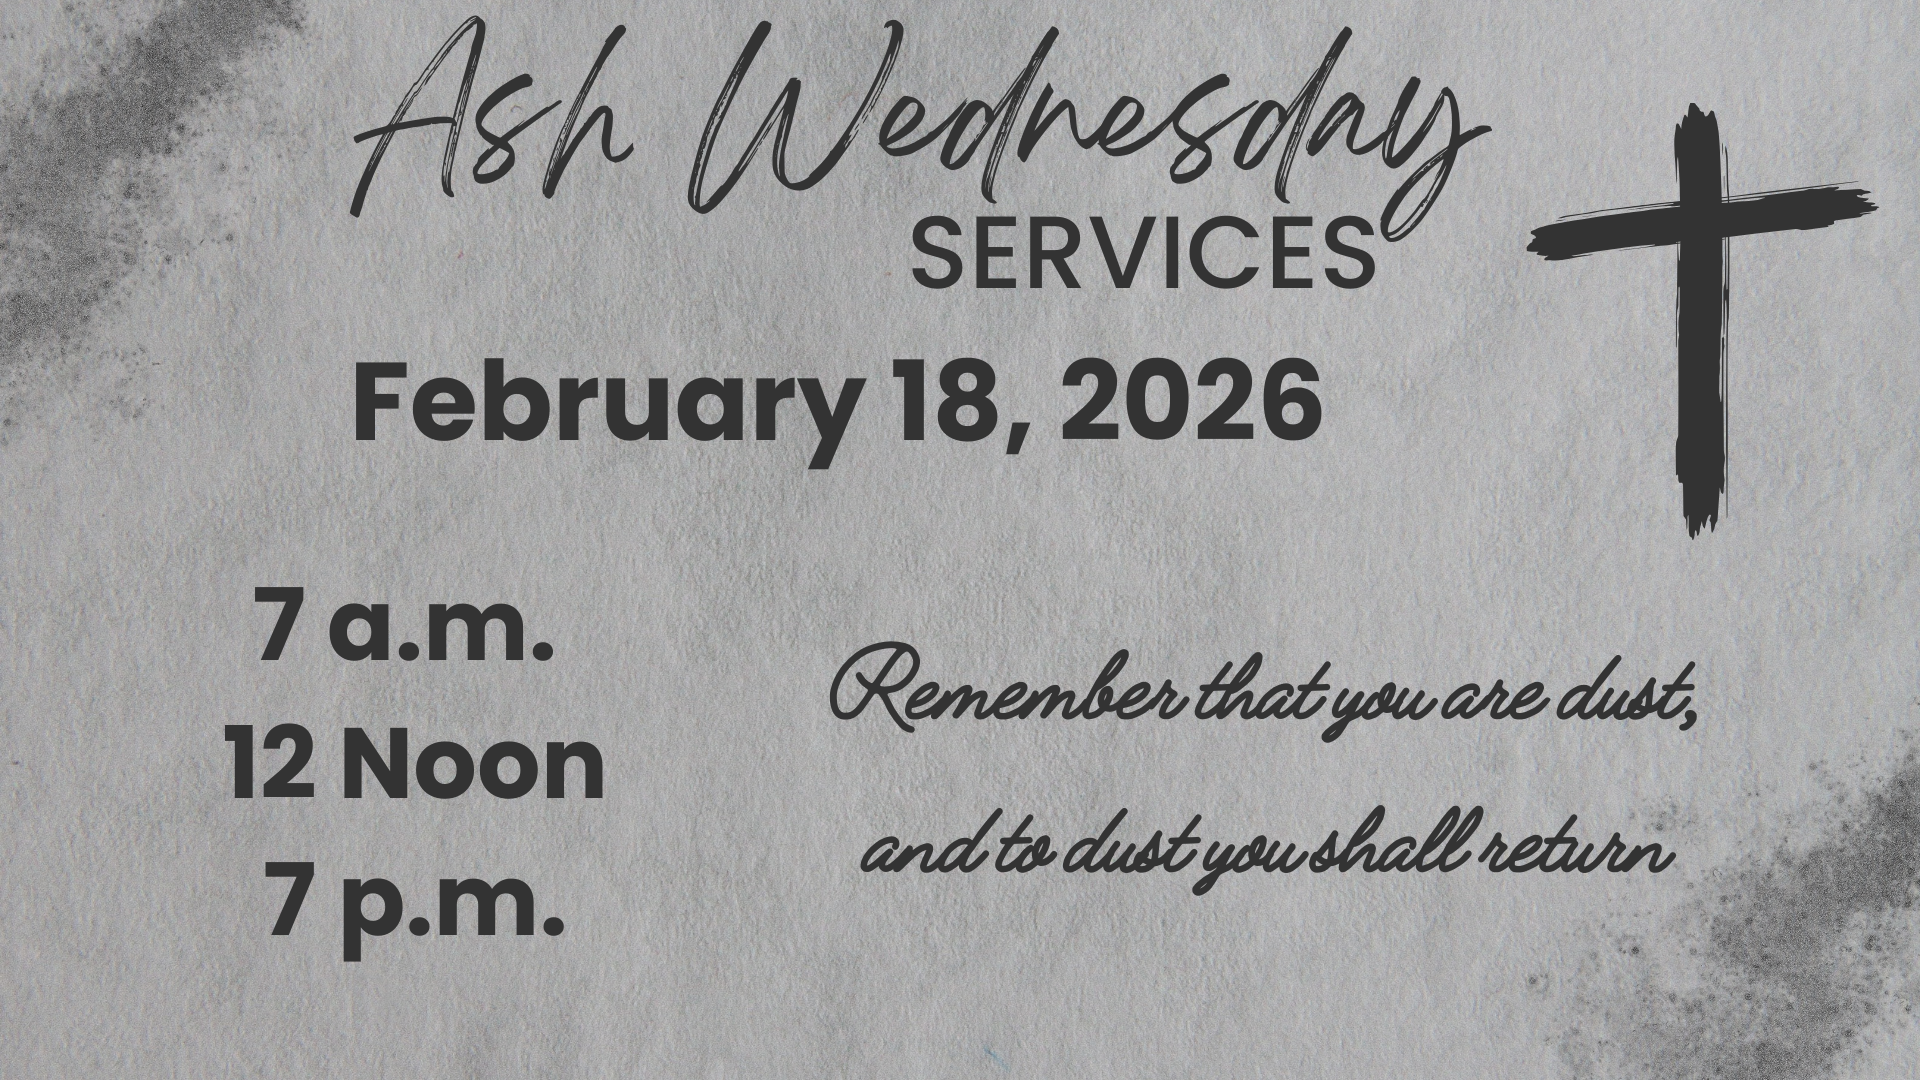 Ash Wednesday
SERVICES
February 18, 2026
7 a.m.
12 Noon
7 p.m.
Remember that you are dust,
and to dust you shall return